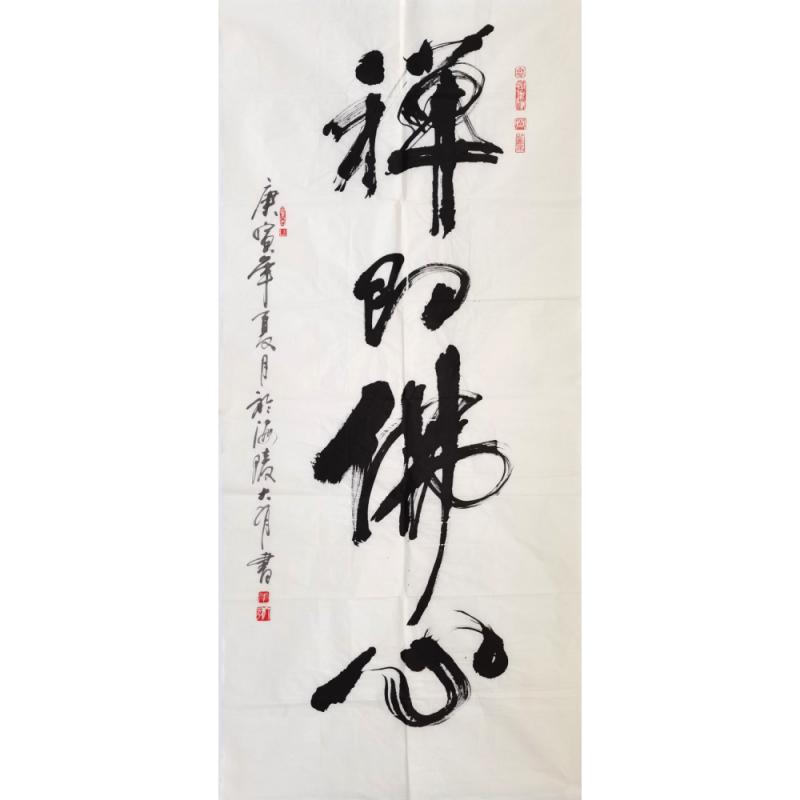 禪即佛心
庚寅年夏月於海陵大有書